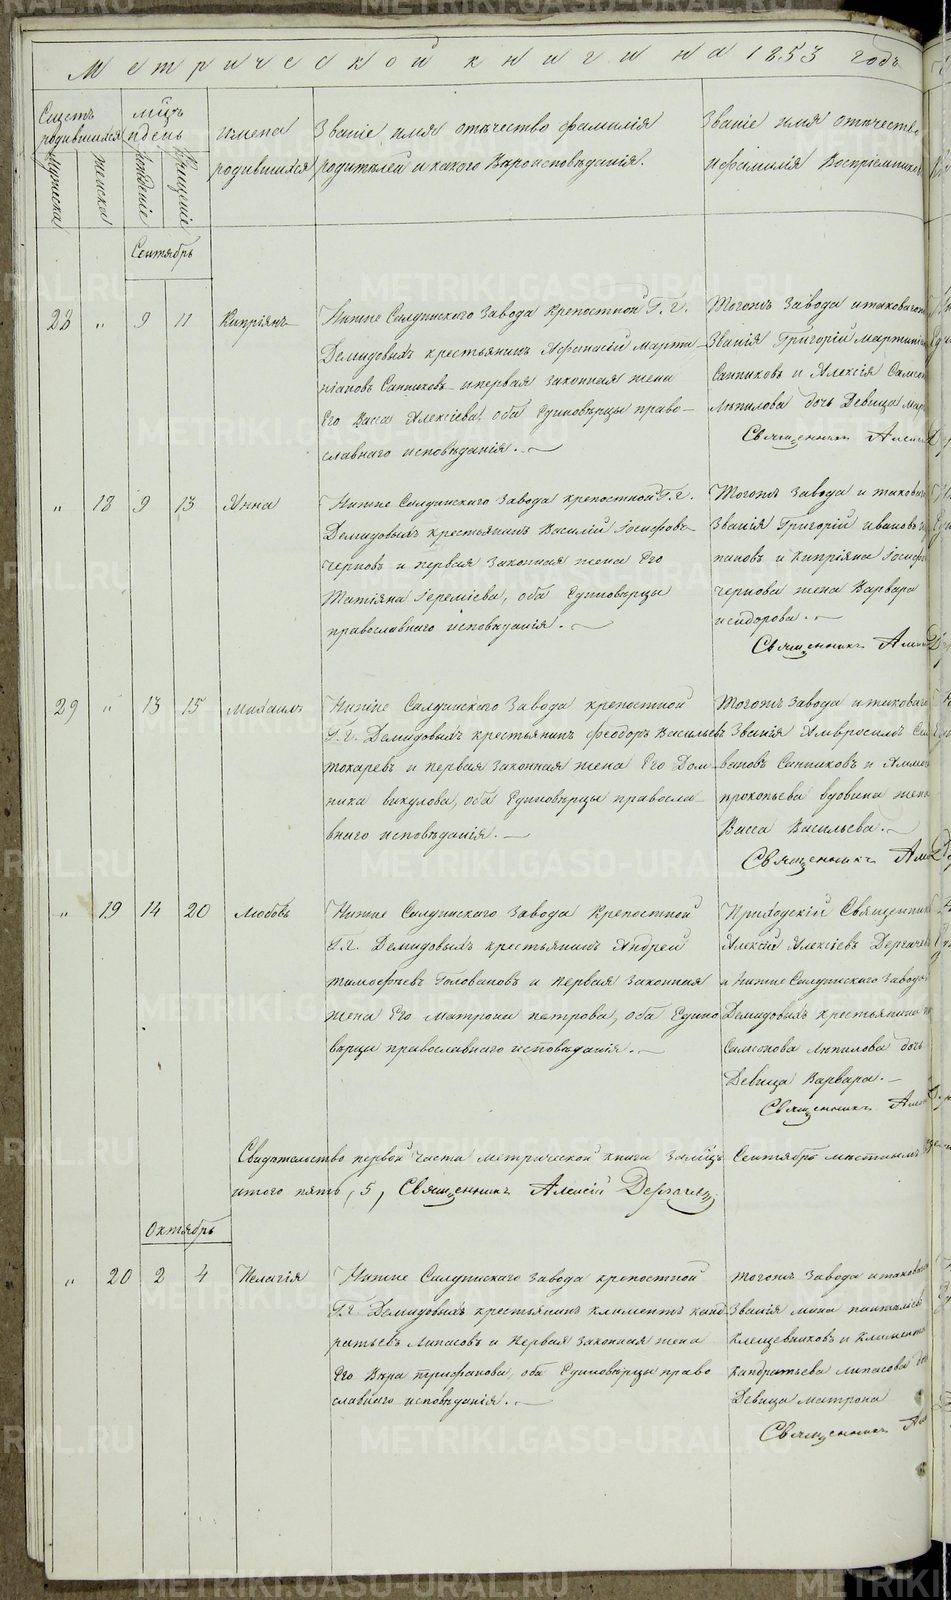 Метрической книги на 1853 годъ
Счетъ родившихся
мужеска
женска
м͠цъ и день
рожденіе
крещеніе
имена
родившихся
Званіе имя отечество фамилія
родителей и какого Вѣроисповѣданія.
Званіе имя отечество
и фамилія Воспріемников
Сентябрь
28 " 9 11 Кипріянъ
Нижне Салдинскаго Завода Крепостной Г.г.
Демидовыхъ крестьянинъ Афанасій Марти
ніановъ Санниковъ и первая законная жена
Его Васса Алексіева, оба Единовѣрцы право-
славнаго исповѣданія.
Тогожъ Завода и таковагож
Званія Григорій Мартині
Санниковъ и Алексія Самсон
Лепилова дочь Девица Мар
Священникъ Алекс
" 18 9 13 Анна
Нижне Салдинскаго Завода крепостной Г.г.
Демидовыхъ крестьянинъ Василій Іосифовъ
Черновъ и первая Законная жена Его
Татіяна Іереміева, оба Единовѣрцы
православнаго исповѣданія.
Тогожъ Завода и таковаго
Званія Григорій Ивановъ
пановъ и Кипріяна Іосиф
Чернова жена Варвара
исидорова.
Священникъ Алек
29 " 13 15 Михаилъ
Нижне Салдинскаго Завода крепостной
Г.г. Демидовыхъ крестьянинъ Феодоръ Васильевъ
Токаревъ и первая Законная жена Его Дом-
ника викулова, оба Единовѣрцы правосла-
внаго исповѣданія.
Тогожъ Завода и таковаго
Званія Амвросилъ Сем
вановъ Санниковъ и
прокопьева вдовина жена
Васса Васильева.
Священникъ Але
" 19 14 20 Любовь
Нижне Салдинскаго Завода Крепостной
Г.г. Демидовыхъ крестьянинъ Андрей
тимофѣевъ Головановъ и первая законная
жена Его Матрона петрова, оба Едино
вѣрцы православнаго исповѣданія.
Приходскій Священник
Алексій Алексіевъ Дергачевъ
и Нижне Салдинскаго Завода
Демидовыхъ крестьянина
Самсонова Лепилова дочь
Девица Варвара.
Священникъ Алек
Свидѣтельство первой части метрической книги За м͠цъ Сентябрь мѣстнымъ
итого пять, 5, Священникъ Алексій Дергачевъ
Октябрь
" 20 2 4 Пелагія
Нижне Салдинскаго Завода крепостной
Г.г. Демидовыхъ крестьянинъ Климентъ Канд
ратьевъ Липасовъ и Первая Законная жена
Его Вѣра трифанова, оба Единовѣрцы право
славнаго исповѣданія.
Тогожъ Завода и таковаго
Званія Мина пантилѣев
Клещевниковъ и Климента
Кандратьева Липасова до
Девица Матрона
Священникъ Ал
METRIKI.GASO-URAL.RU